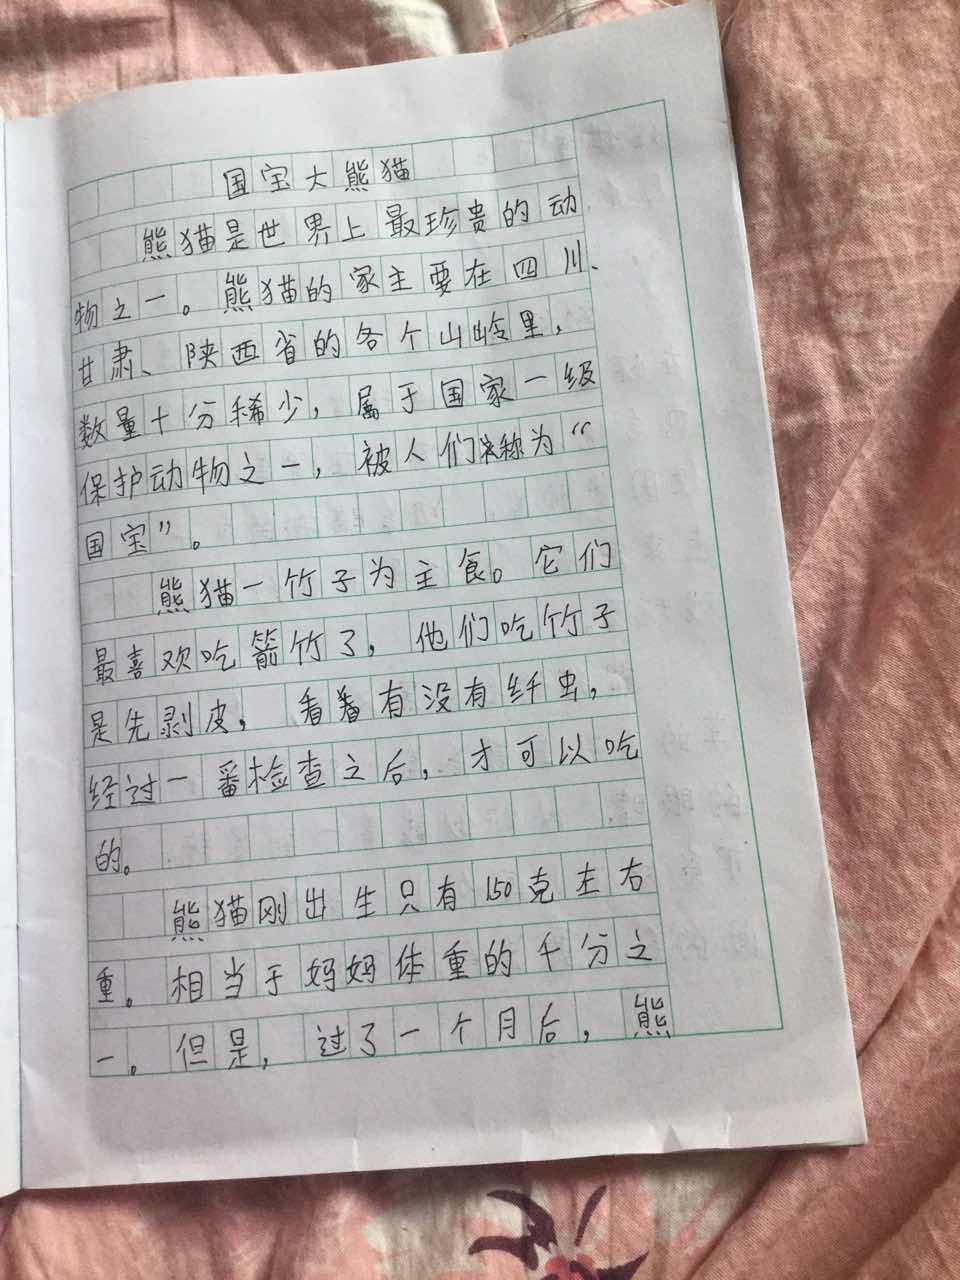 国宝大熊猫
熊猫是世界上最珍贵的动
物之一。熊猫的家主要在四川、
甘肃、陕西省的各个山岭里，
数量十分稀少，属于国家一级
保护动物之一，被人们称为“
国宝”。
熊猫一竹子为主食。它们
最喜欢吃箭竹了，他们吃竹子
是先剥皮，看看有没有纤虫，
经过一番检查之后，才可以吃
的。
熊猫刚出生只有150克左右
重。相当于妈妈体重的千分之
一。但是，过了一个月后，熊